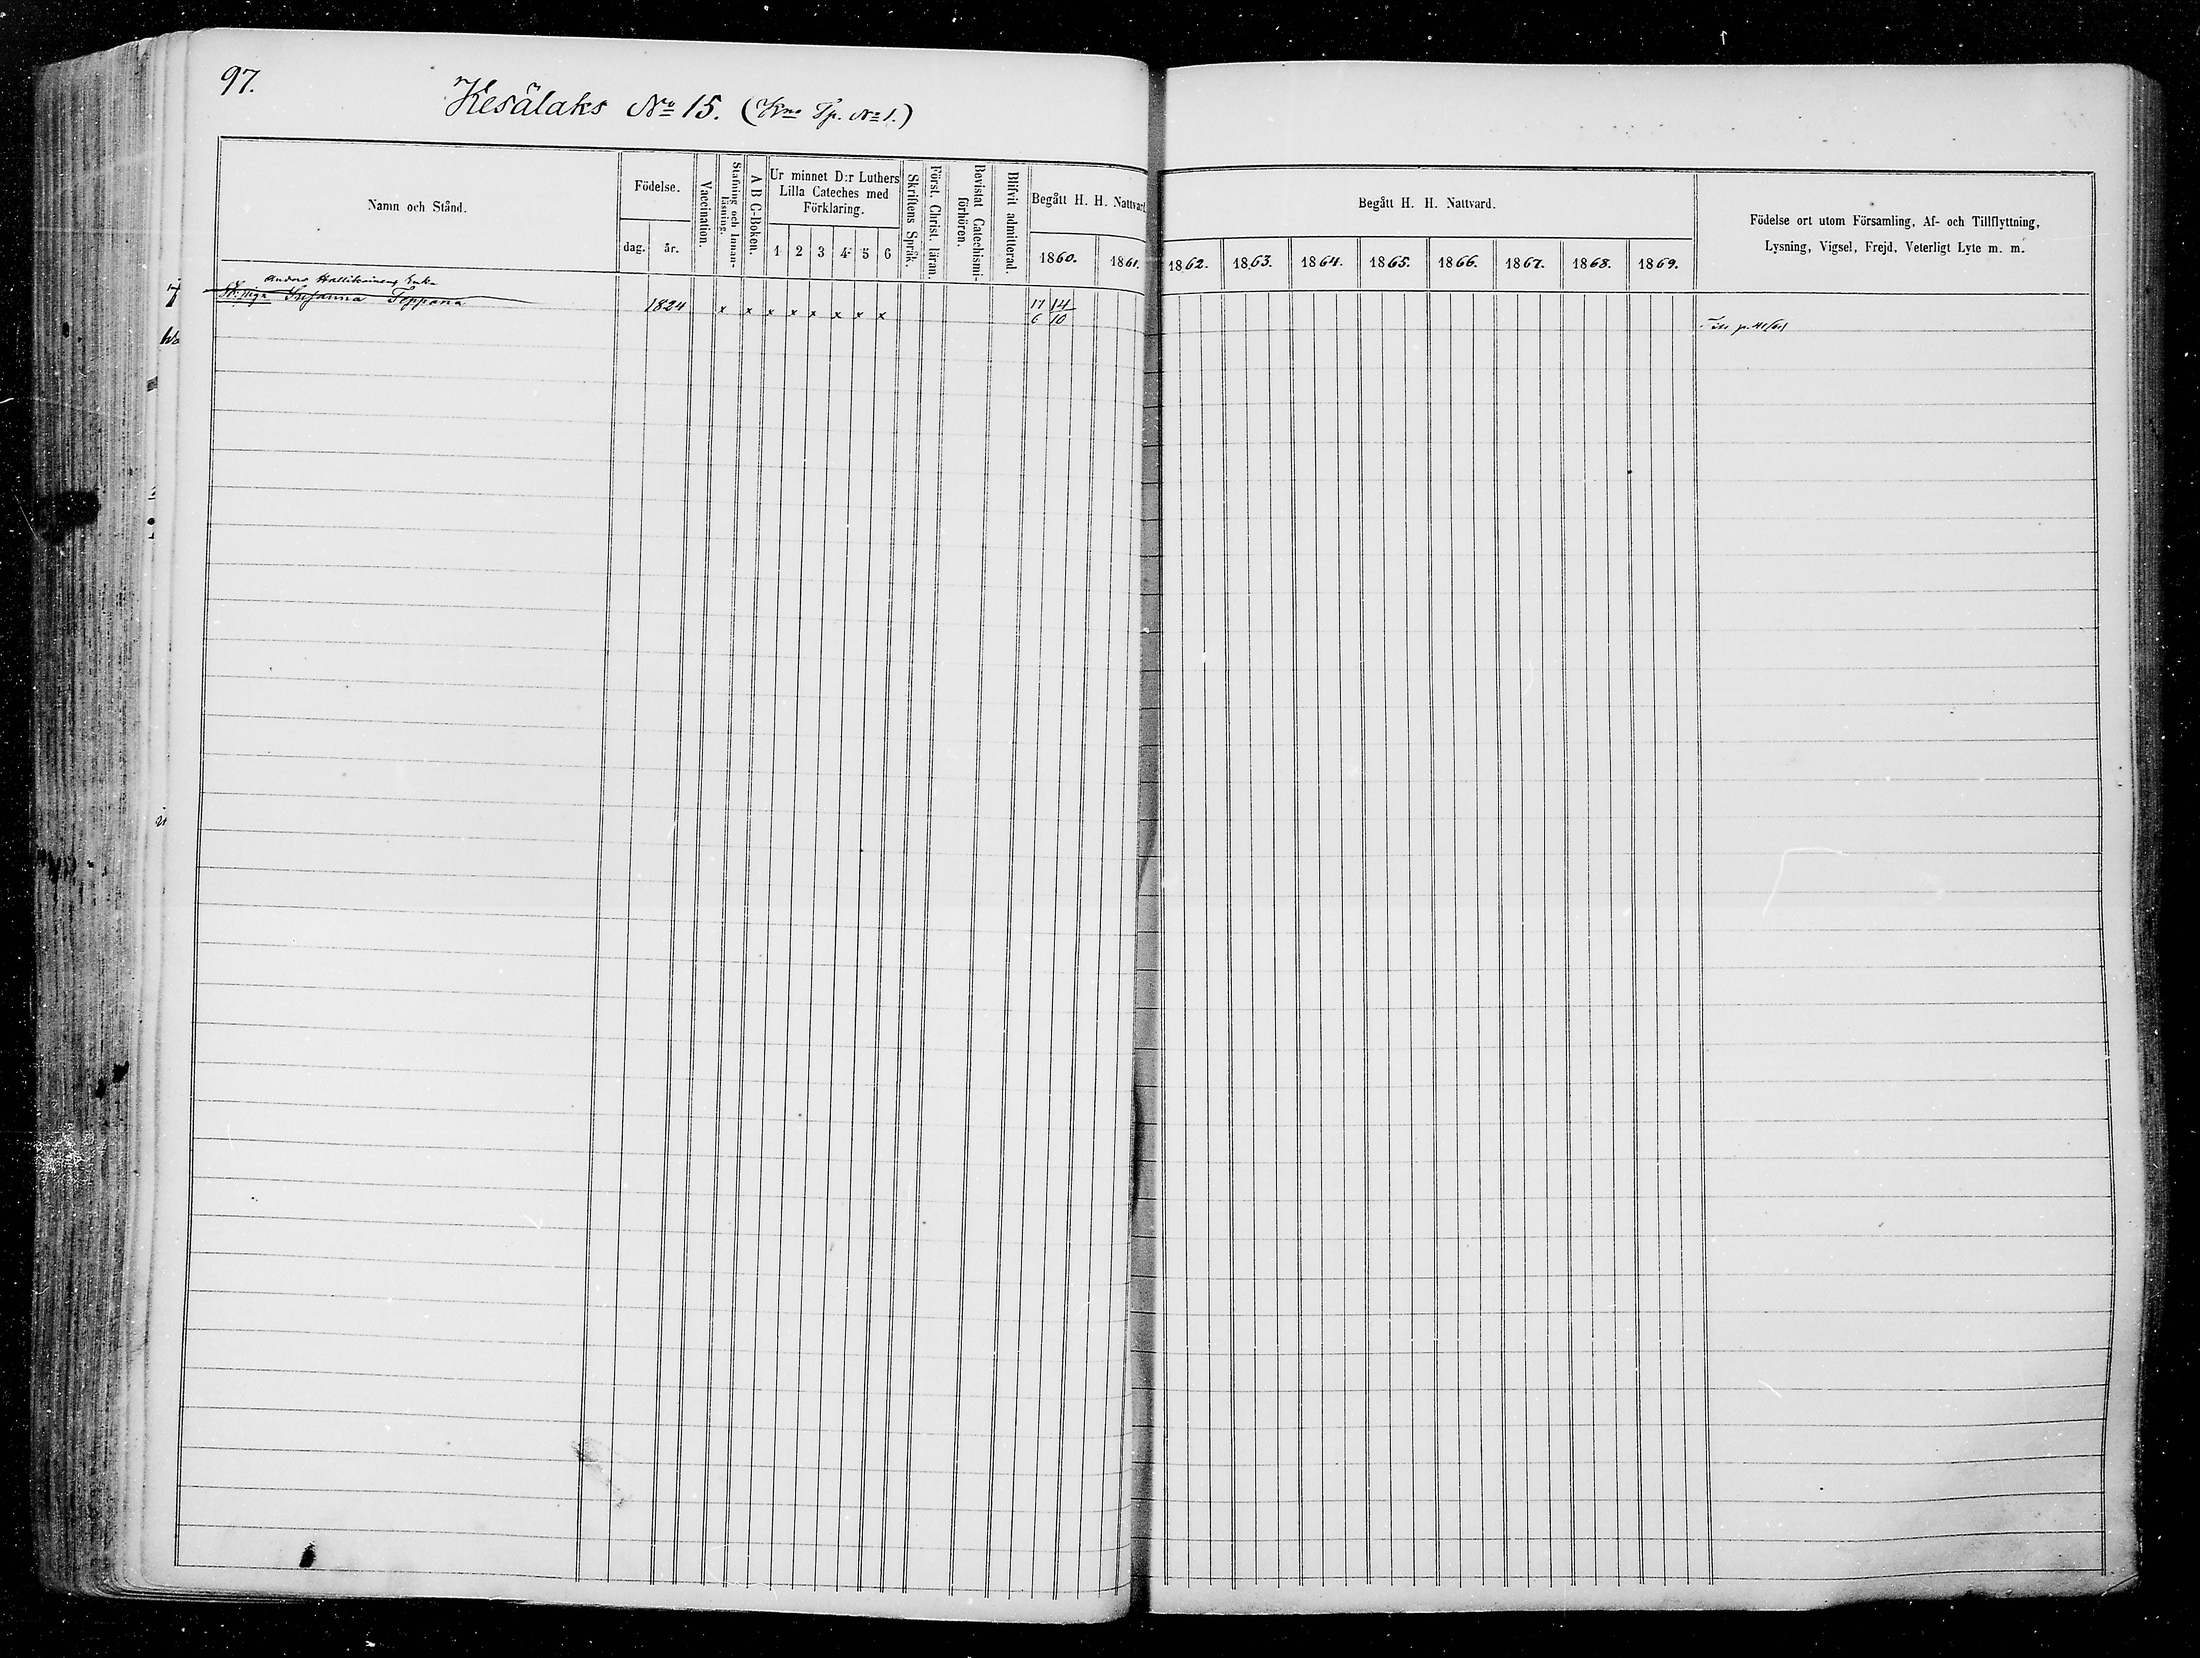 97.
Kesälaks No 15. (Kno Tp. No 1.)
Namn och Stånd.
Födelse.
dag.
år.
Vaccination.
Stafning och Innan-läsning.
A B C-Boken.
Ur minnet D:r Luthers
Lilla Cateches med
Förklaring.
1 2 3 4 5 6
Skriftens Språk.
Först. Christ. läran.
Bevistat Catechismi-förhören.
Blifvit admitterad.
Begått H. H. Nattvard.
1860. 1861.
Begått H. H. Nattvard.
1862. 1863. 1864. 1865. 1866. 1867. 1868. 1869.
Födelse ort utom Församling, Af- och Tillflyttning,
Lysning, Vigsel, Frejd, Veterligt Lyte m. m.
Anders Hallikainens Enka
Susanna Toppona 1824 x x x x x x x x 17/6 14/10